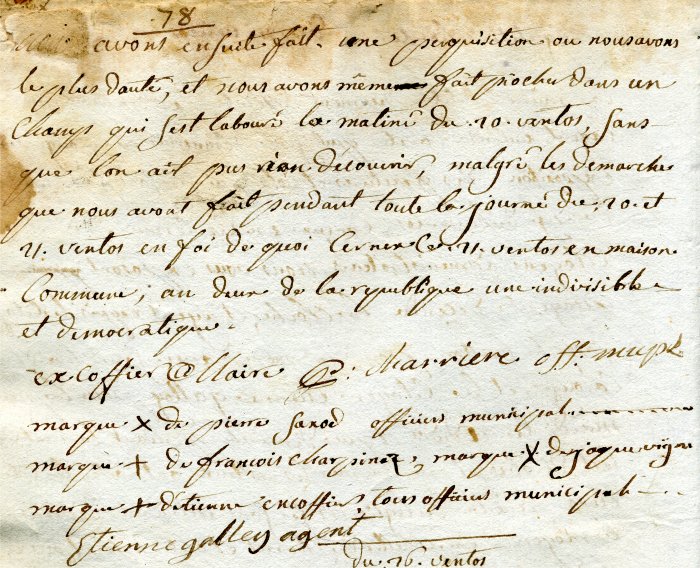 78
avons ensuite fait une perquisition ou nous avons
le plus daute, et nous avons même fait piocher dans un
Champ qui sest labouré le matiné du 20. ventos, sans
que lon ait pus rien decouvrir, malgré les demarche
que nous avont fait pendant toute la journé du 20. et
21. ventos en foi de quoi Cernex Ce 21 ventos en maison
Commune, an deux de la republique une indivisible
et democratique.
excoffier Maire Marriere off. mupl
marque X de pierre Sanod officier municipal
marque + de françois Charpine, marque X de jaque vigne
marque + detienne encoffier, tous officiers municipal
Etienne galley agent
du 26. ventos